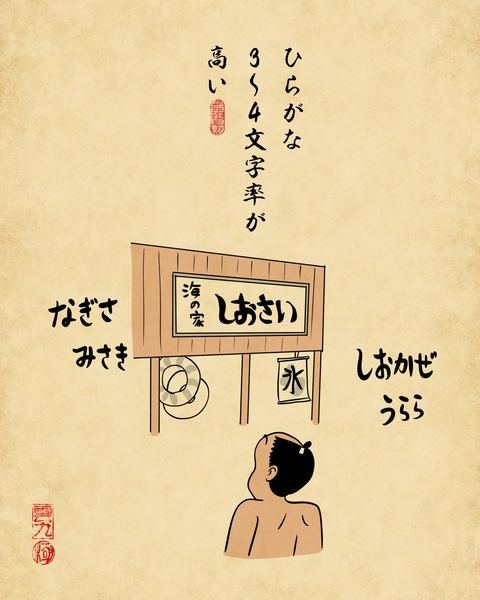 ひらがな
3〜4文字率が
高い
海の家
しおさい
なぎさ
みさき
氷
しおかぜ
うらら